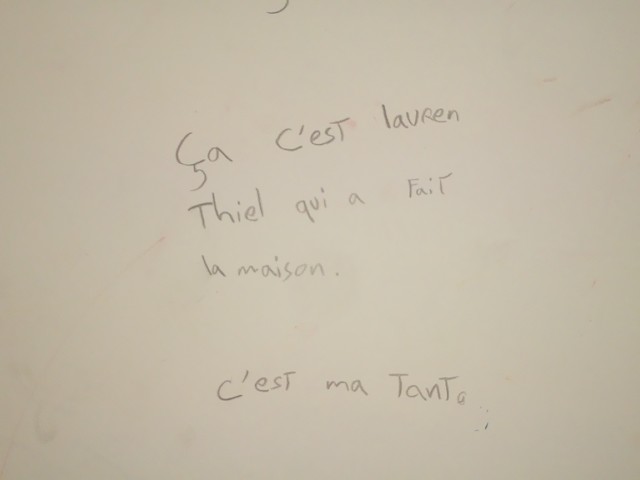 Ça c'est lauren
Thiel qui a Fait
la maison.
c'est ma Tanta